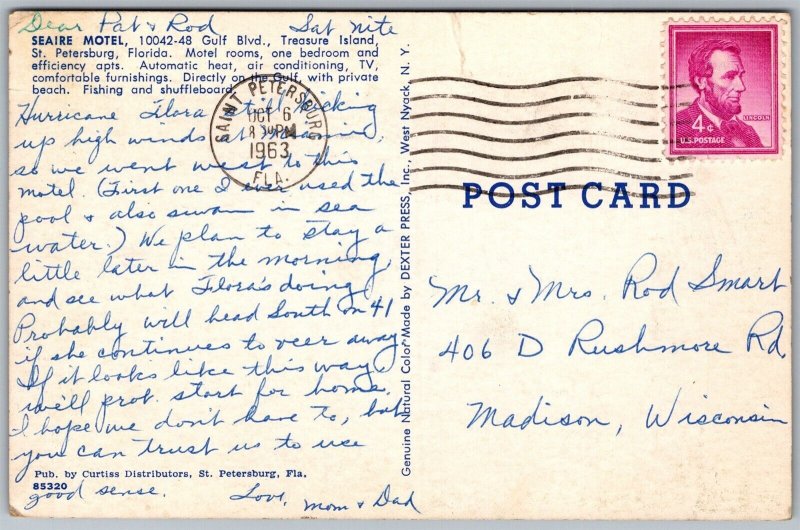 Dear Pat & Rod Sat nite
SEAIRE MOTEL, 10042-48 Gulf Blvd., Treasure Island,
St. Petersburg, Florida. Motel rooms, one bedroom and
efficiency apts. Automatic heat, air conditioning, TV,
comfortable furnishings. Directly on the Gulf, with private
beach. Fishing and shuffleboard.
Hurricane Flora still kicking
up high winds
so we went west to this
motel. (First one I ever used the
pool & also swam in sea
water.) We plan to stay a
little later in the morning
and see what Flora's doing.
Probably will head South on 41
if she continues to veer away.
If it looks like this way
we'll prob. start for home.
I hope we don't have to, but
you can trust us to use
Pub. by Curtiss Distributors, St. Petersburg, Fla.
85320
good sense. Love, Mom & Dad
Genuine Natural Color Made by DEXTER PRESS, Inc., West Nyack, N. Y.
SAINT PETERSBURG
OCT 6
PM
1963
FLA.
LINCOLN
4¢
U.S. POSTAGE
POST CARD
Mr. & Mrs. Rod Smart
406 D Rushmore Rd.
Madison, Wisconsin